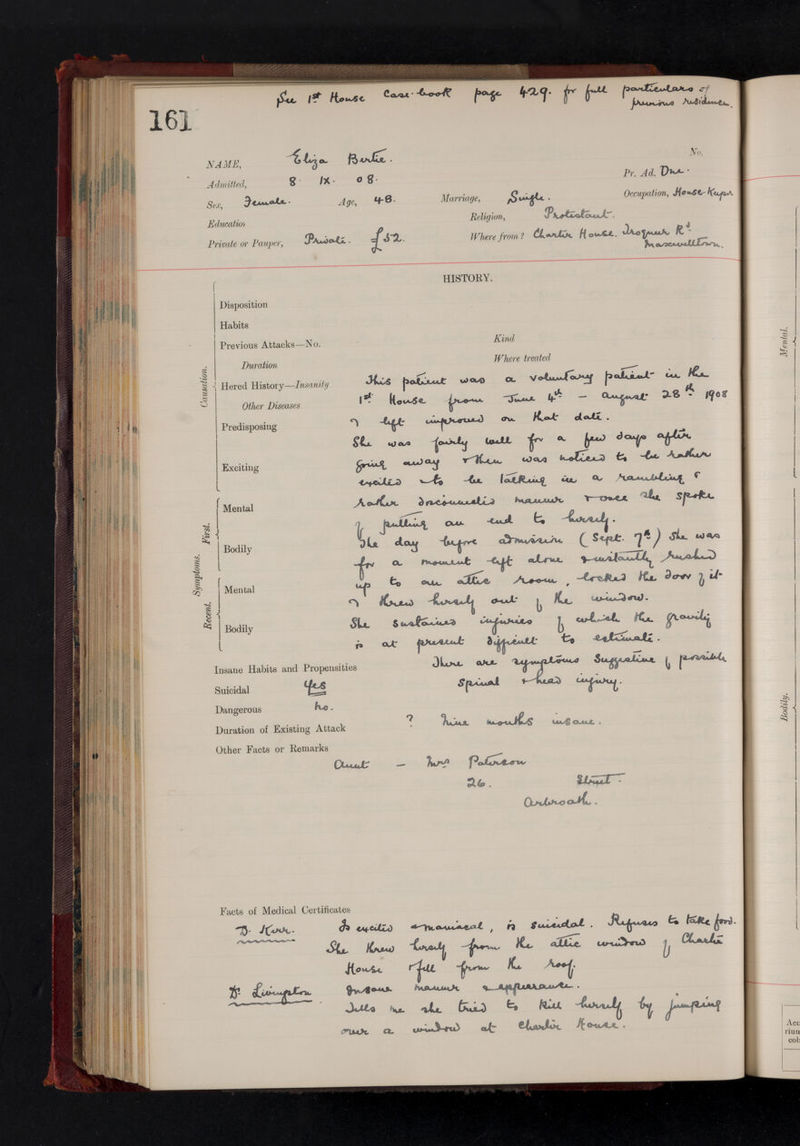 See 1st House Case-book page 429. for full particulars of
previous residence.
161
No.
NAME, Eliza Bertie.
Pr. Ad. One.
Admitted, 8. IX. 08.
Sex, Female. Age, 48. Marriage, Single. Occupation, House-Keeper
Education Religion, Protestant.
Private or Pauper, Private. £52. Where from? Charlie House, Rd
Maxwelltown.
HISTORY.
Disposition
Habits
Previous Attacks—No. Kind
Duration Where treated
Hered History—Insanity This patient was a voluntary patient in the
Other Diseases 1st House from June 4th – August 28th 1908
Predisposing & left improved on that date.
She was fairly well for a few days after
Exciting going away & then was noticed to be rather
excited & to be talking in a rambling &
Mental rather disconnected manner & once she spoke
of putting an end to herself.
Bodily The day before admission (Sept. 7th) she was
for a moment left alone & instantly rushed
Mental up to an attic room, locked the door of it
& threw herself out of the window.
Bodily She sustained injuries of which the gravity
is at present difficult to estimate.
Insane Habits and Propensities There are symptoms suggestive of possible
Suicidal Yes spinal & head injury.
Dangerous no.
Duration of Existing Attack ? nine months insane.
Other Facts or Remarks
Aunt — Mrs Paterson
26. Street.
Arbroath.
Causation.
Symptoms.
First.
Recent.
Facts of Medical Certificates
Dr. Kerr. Is excited & maniacal, is suicidal. Refuses to take food.
She threw herself from the attic window of Charlie
House & fell from the roof.
Dr Livingston Insane manner & appearance.
Tells me she tried to kill herself by jumping
over a window at Charlie House.
Mental.
Bodily.
Acc
rium
col